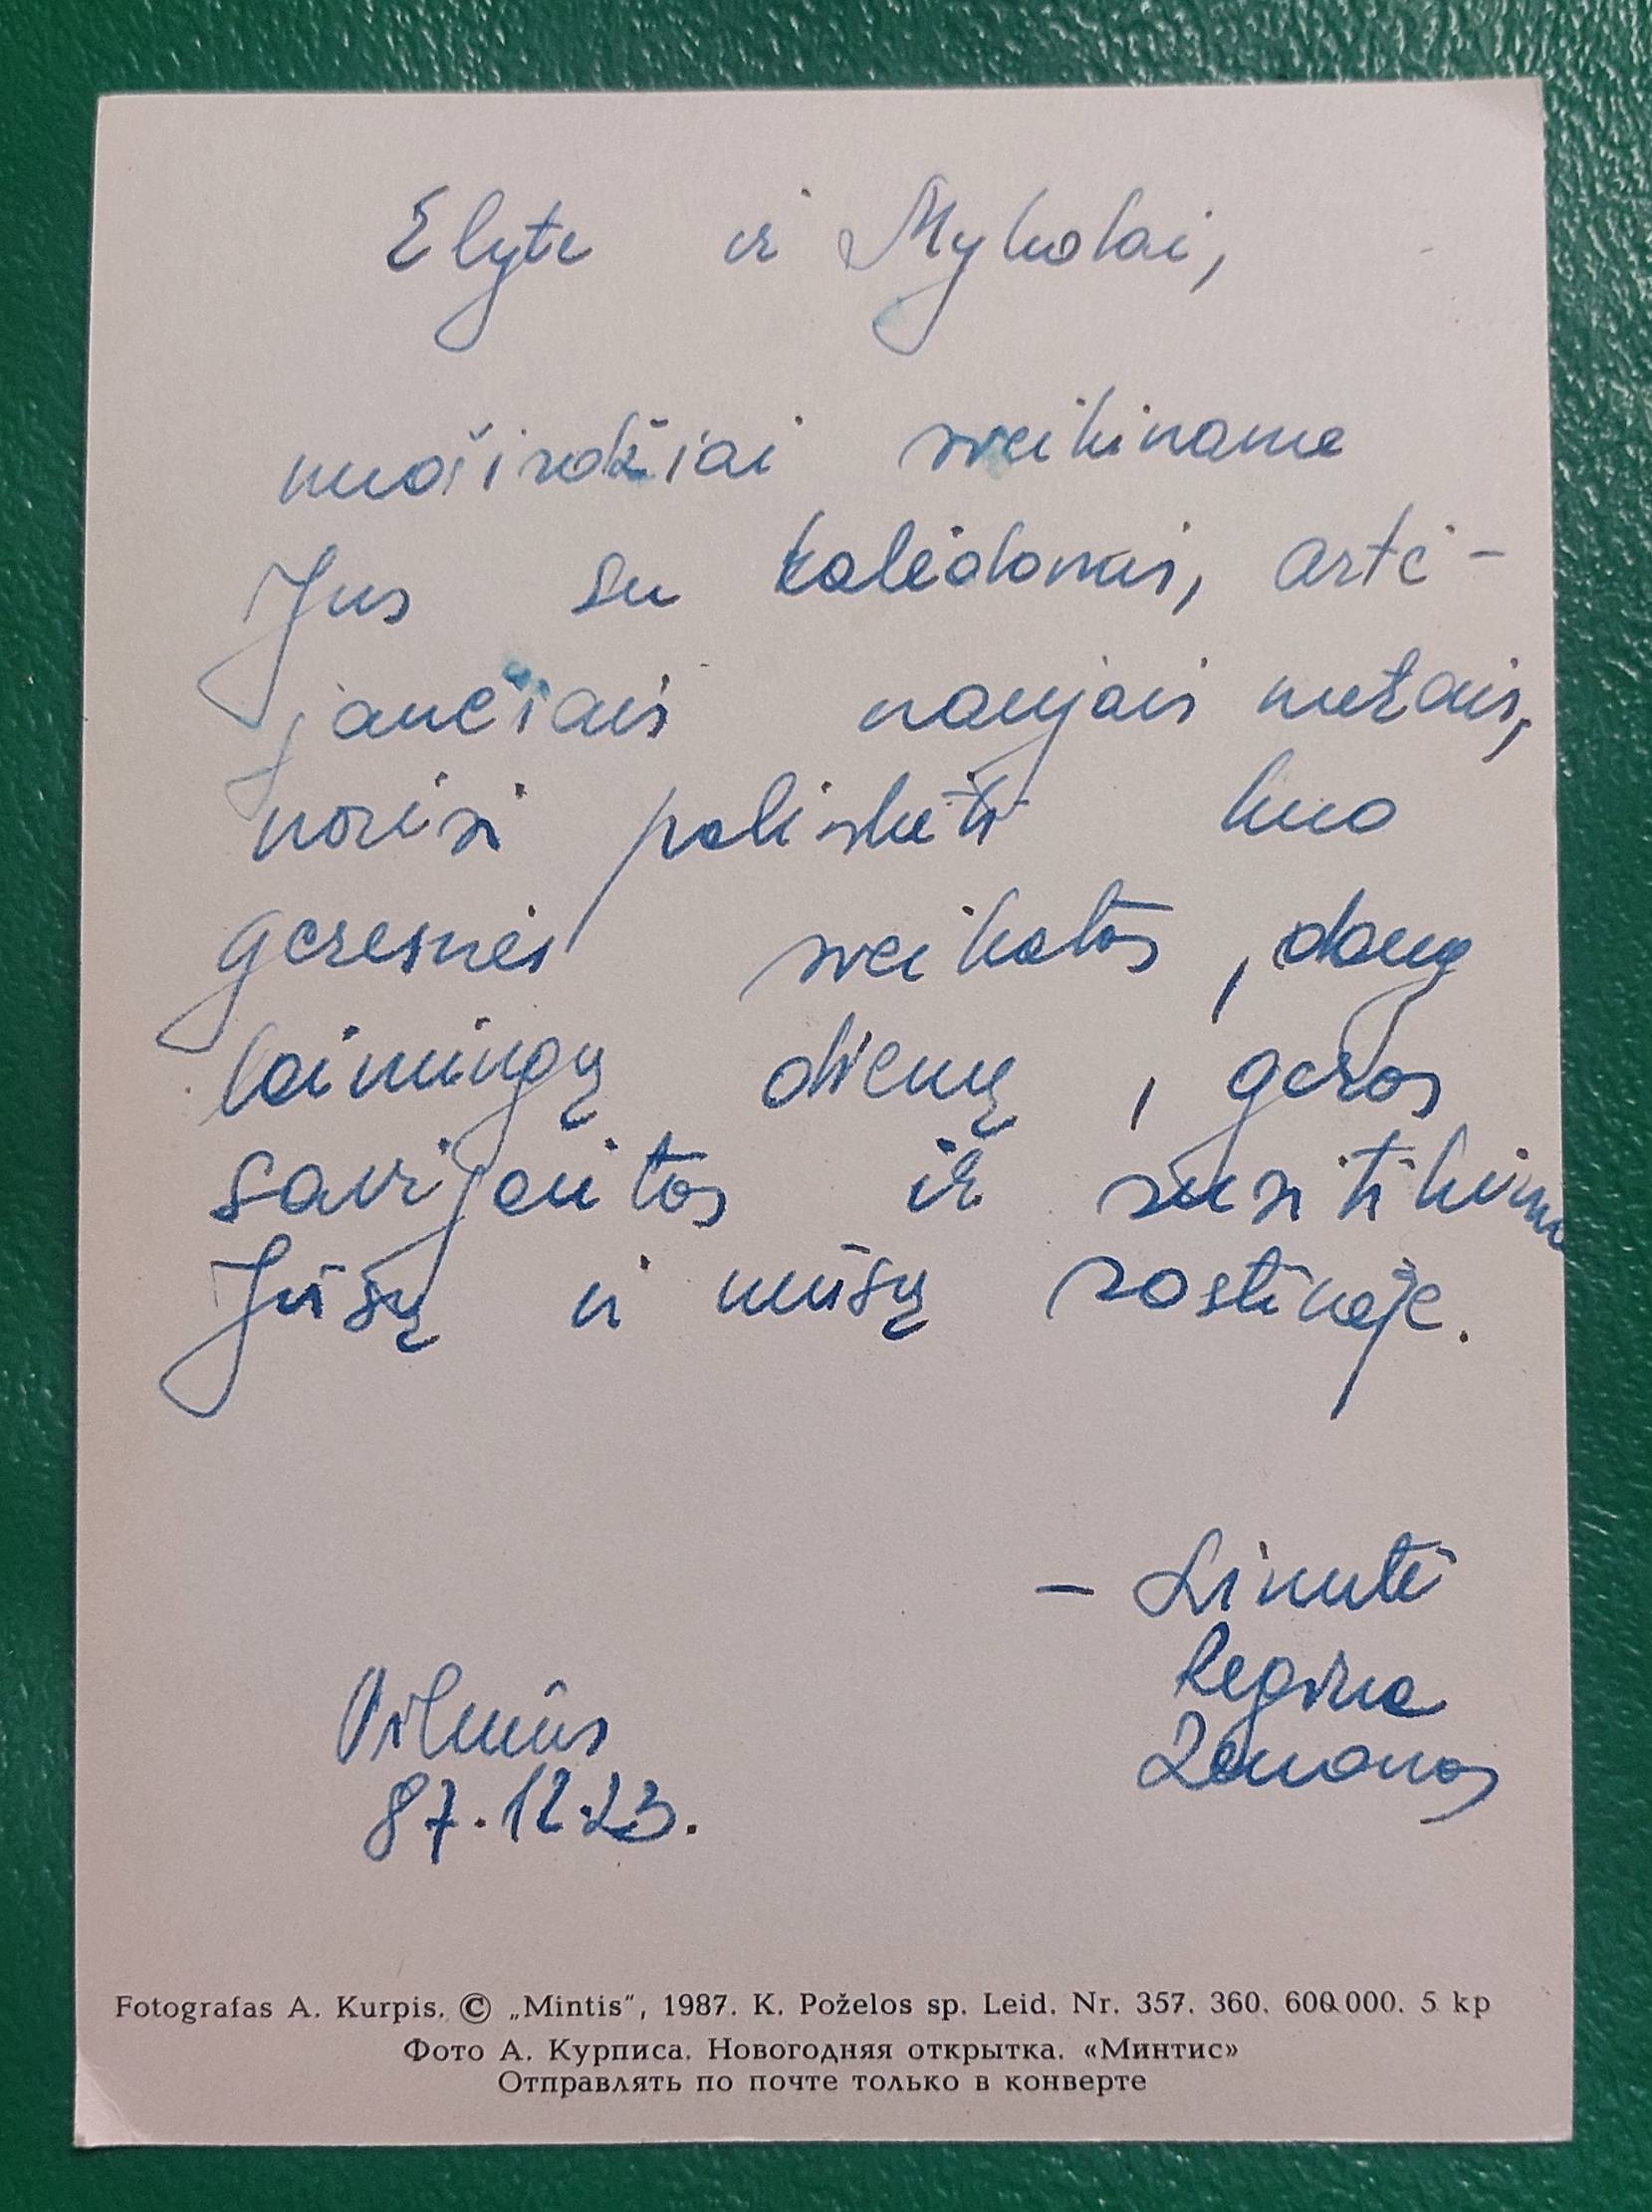 Elyte ir Mykolai,
nuoširdžiai sveikiname
Jus su kalėdomis, artė-
jančiais naujais metais,
norisi palinkėti kuo
geresnės sveikatos, daug
laimingų dienų, geros
savijautos ir susitikimo
Jūsų ir mūsų sostinėje.
– Linutė
Regina
Zenonas
Vilnius
87.12.23.
Fotografas A. Kurpis. © „Mintis”, 1987. K. Poželos sp. Leid. Nr. 357. 360. 600 000. 5 kp
Фото А. Курписа. Новогодняя открытка. «Минтис»
Отправлять по почте только в конверте